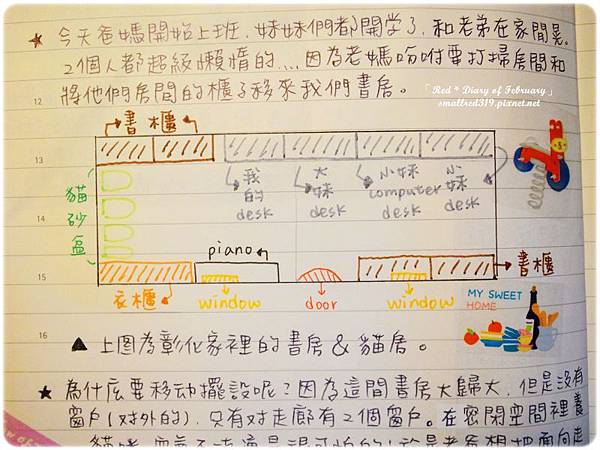 ★ 今天爸媽開始上班，妹妹們都開學了，和老弟在家閒晃。
2個人都超級懶惰的....因為老媽吩咐要打掃房間和
將他們房間的櫃子移來我們書房。
「Red * Diary of February」
smallred319.pixnet.net
12
書櫃
13
我的desk
大妹desk
小妹computer desk
小妹desk
貓砂區
14
piano
15
書櫃
衣櫃
window
door
window
MY SWEET
HOME
16
▲ 上圖為彰化家裡的書房 & 貓居。
★ 為什庅要移动擺設呢？因為這間書房大歸大，但是沒有
窗戶(対外的)，只有対走廊有2個窗戶。在密閉空間裡養